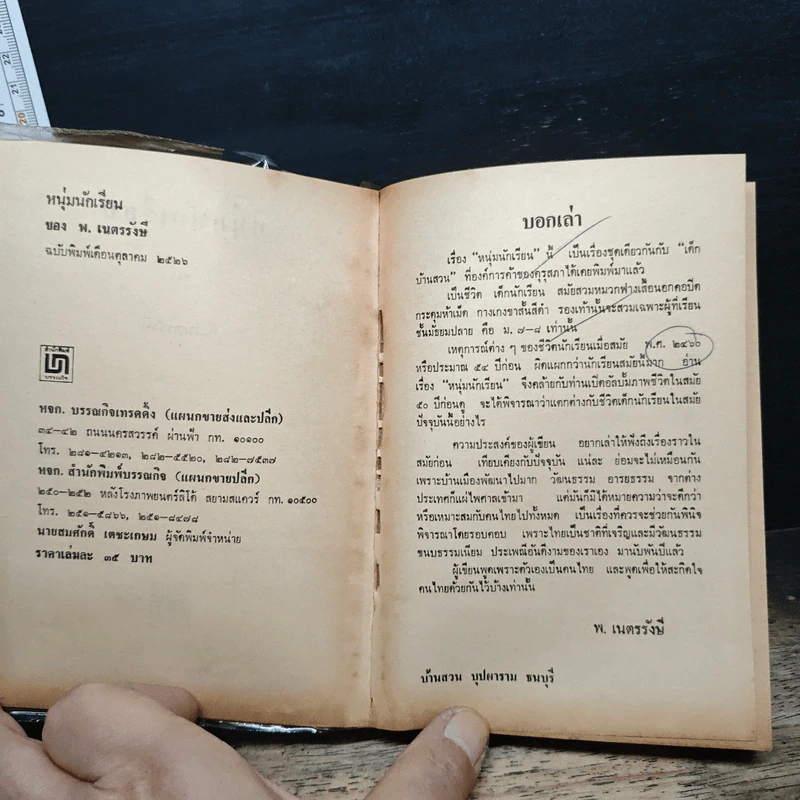 หนุ่มนักเรียน
ของ พ. เนตรรังษี
ฉบับพิมพ์เดือนตุลาคม ๒๕๒๖
สำนักพิมพ์
บรรณกิจ
หจก. บรรณกิจเทรดดิ้ง (แผนกขายส่งและปลีก)
๓๔-๔๒ ถนนนครสวรรค์ ผ่านฟ้า กท. ๑๐๑๐๐
โทร. ๒๘๑-๔๒๑๓, ๒๘๒-๕๕๒๐, ๒๘๒-๗๕๓๗
หจก. สำนักพิมพ์บรรณกิจ (แผนกขายปลีก)
๒๕๐-๒๕๒ หลังโรงภาพยนตร์ลิโด้ สยามสแควร์ กท. ๑๐๕๐๐
โทร. ๒๕๑-๕๘๖๖, ๒๕๑-๘๔๗๘
นายสมศักดิ์ เตชะเกษม ผู้จัดพิมพ์จำหน่าย
ราคาเล่มละ ๓๕ บาท
บอกเล่า
เรื่อง "หนุ่มนักเรียน" นี้ เป็นเรื่องชุดเดียวกันกับ "เด็ก
บ้านสวน" ที่องค์การค้าของคุรุสภาได้เคยพิมพ์มาแล้ว
เป็นชีวิต เด็กนักเรียน สมัยสวมหมวกฟางเสื้อนอกคอปิด
กระดุมห้าเม็ด กางเกงขาสั้นสีดำ รองเท้านั้นจะสวมเฉพาะผู้ที่เรียน
ชั้นมัธยมปลาย คือ ม. ๗-๘ เท่านั้น
เหตุการณ์ต่าง ๆ ของชีวิตนักเรียนเมื่อสมัย พ.ศ. ๒๔๖๐
หรือประมาณ ๕๔ ปีก่อน ผิดแผกกว่านักเรียนสมัยนี้มาก อ่าน
เรื่อง "หนุ่มนักเรียน" จึงคล้ายกับท่านเปิดอัลบั้มภาพชีวิตในสมัย
๕๐ ปีก่อนดู จะได้พิจารณาว่าแตกต่างกับชีวิตเด็กนักเรียนในสมัย
ปัจจุบันนี้อย่างไร
ความประสงค์ของผู้เขียน อยากเล่าให้ฟังถึงเรื่องราวใน
สมัยก่อน เทียบเคียงกับปัจจุบัน แน่ละ ย่อมจะไม่เหมือนกัน
เพราะบ้านเมืองพัฒนาไปมาก วัฒนธรรม อารยธรรม จากต่าง
ประเทศก็แผ่ไพศาลเข้ามา แต่มันก็มิได้หมายความว่าจะดีกว่า
หรือเหมาะสมกับคนไทยไปทั้งหมด เป็นเรื่องที่ควรจะช่วยกันพินิจ
พิจารณาโดยรอบคอบ เพราะไทยเป็นชาติที่เจริญและมีวัฒนธรรม
ขนบธรรมเนียม ประเพณีอันดีงามของเราเอง มานับพันปีแล้ว
ผู้เขียนพูดเพราะตัวเองเป็นคนไทย และพูดเพื่อให้สะกิดใจ
คนไทยด้วยกันไว้บ้างเท่านั้น
พ. เนตรรังษี
บ้านสวน บุปผาราม ธนบุรี